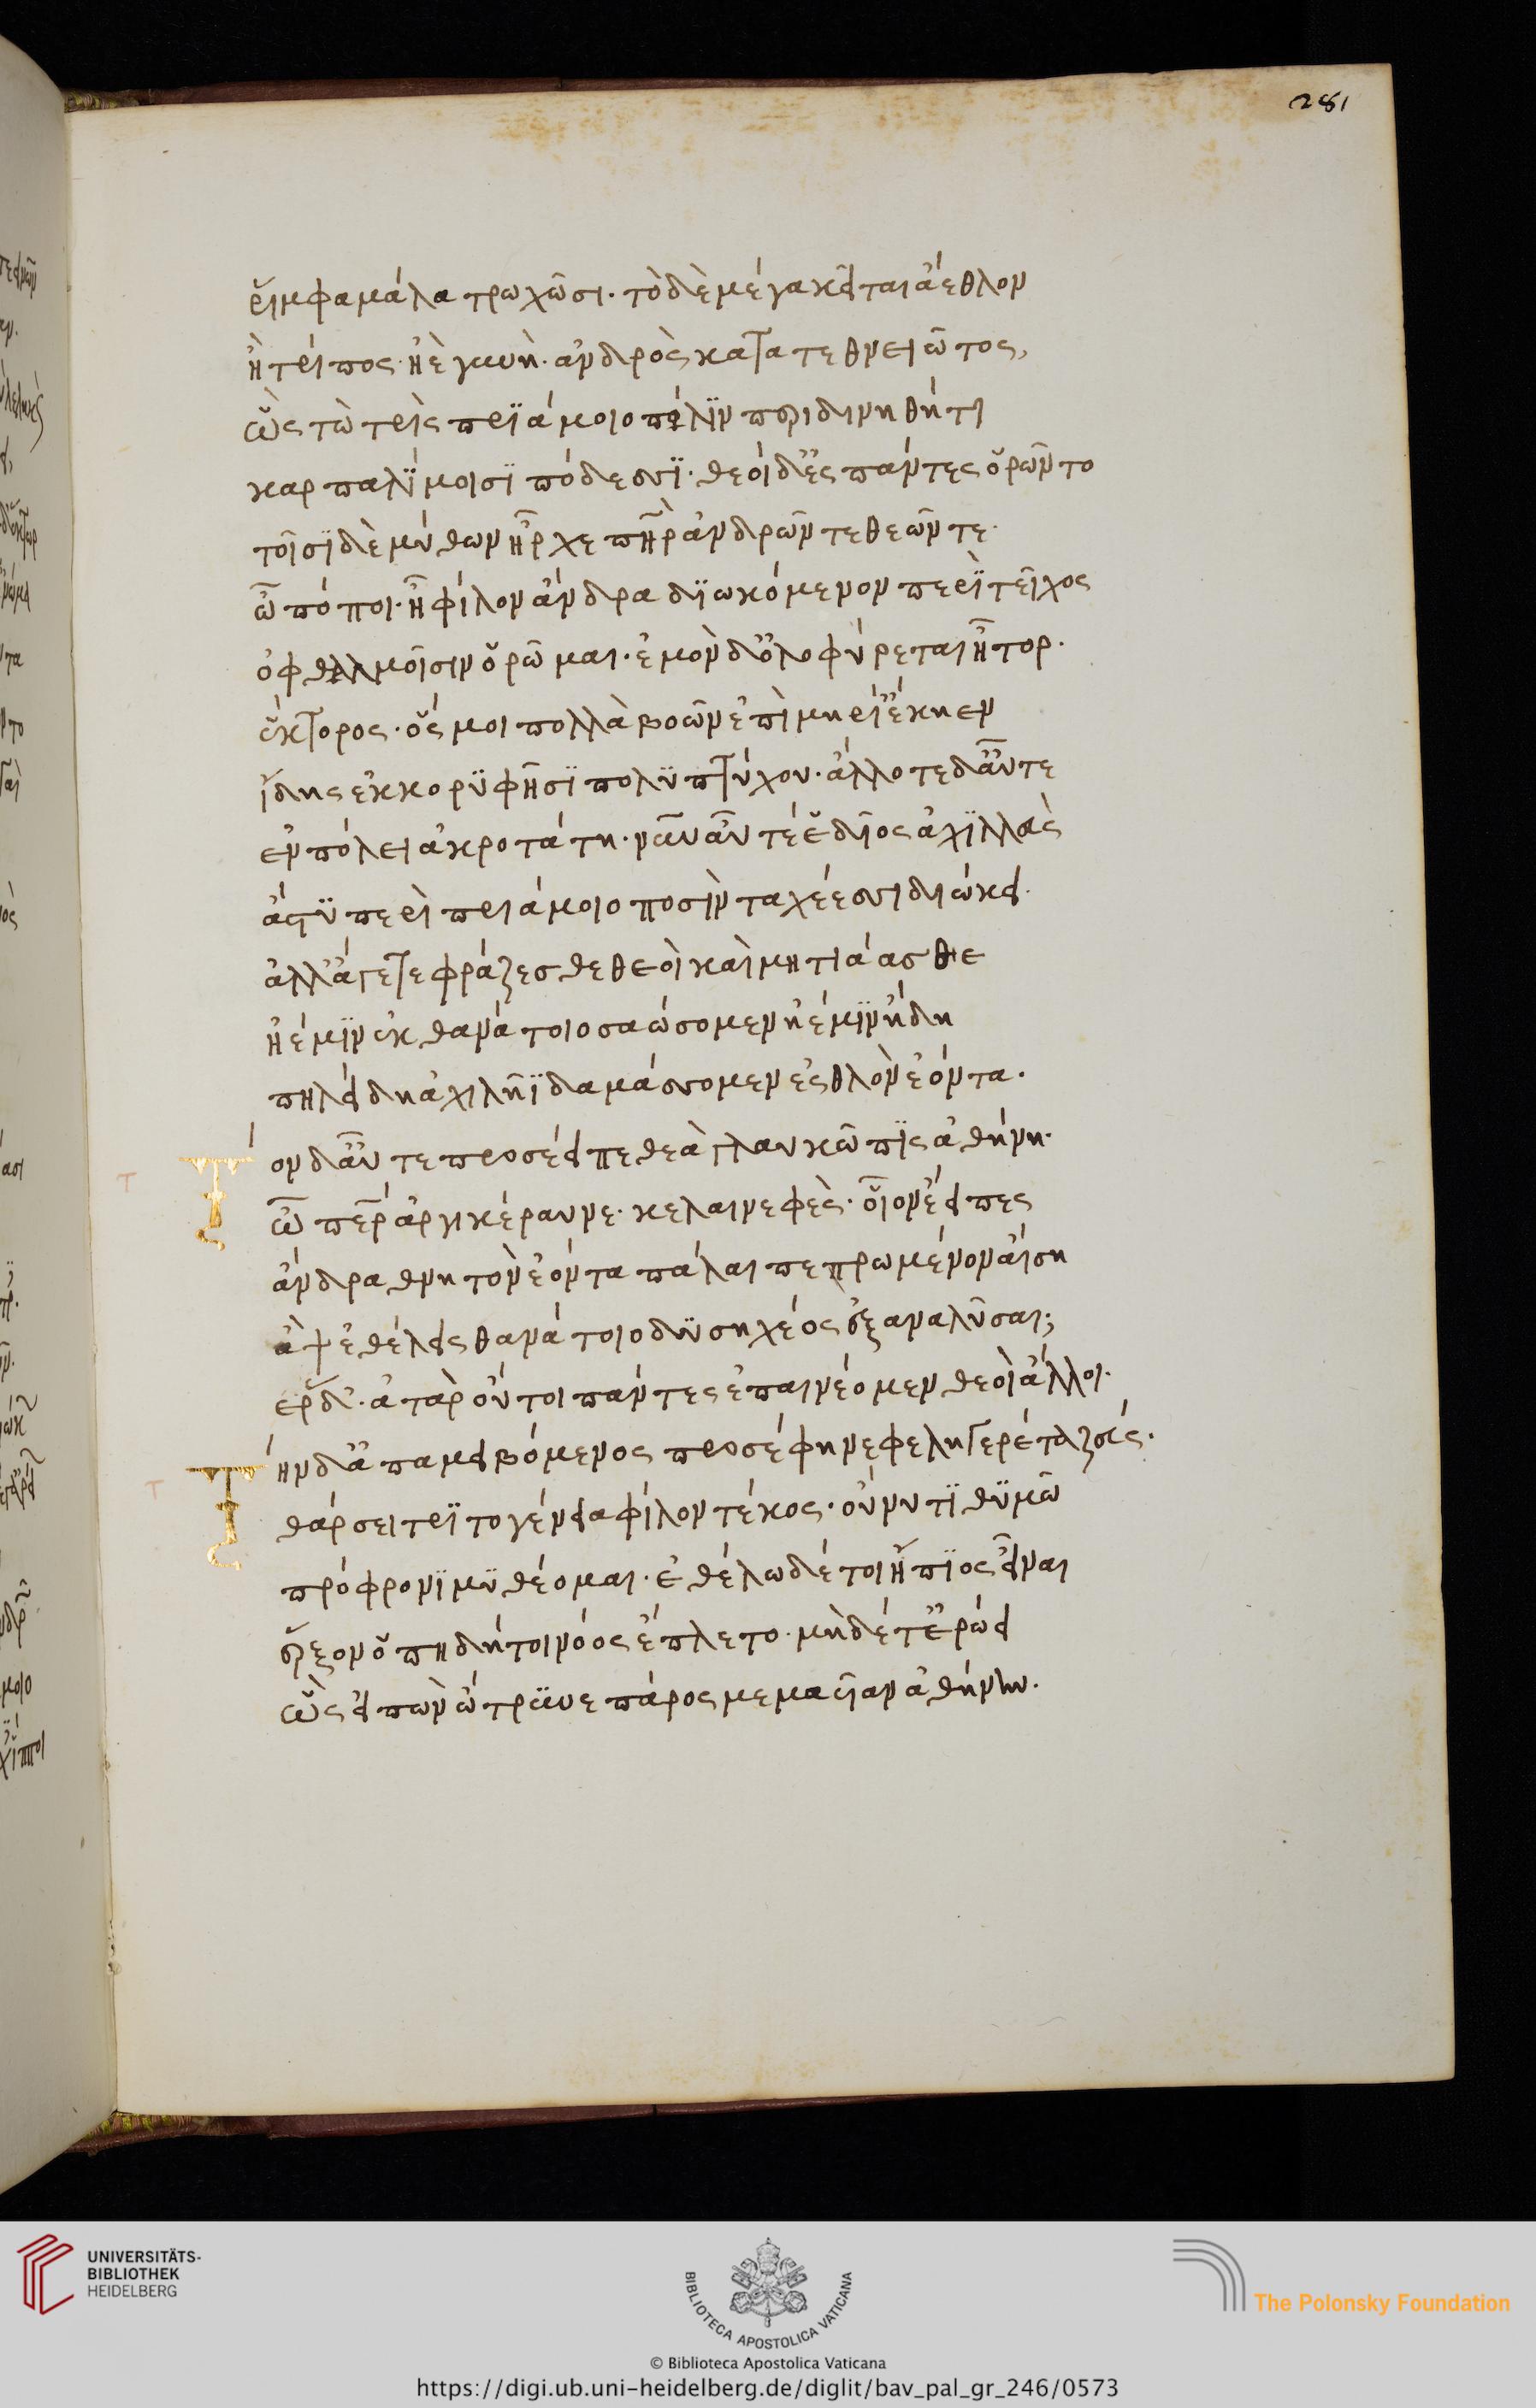 281
ῥίμφα μάλα τρωχῶσι· τὸ δὲ μέγα κεῖται ἄεθλον
ἢ τρίπος· ἠὲ γυνὴ· ἀνδρὸς κατατεθνειῶτος,
ὣς τὼ τρὶς πρϊάμοιο πόλϊν περιδινηθήτι
καρπαλίμοισϊ πόδεσσϊ· θεοὶ δ' ἐς πάντες ὁρῶντο
τοῖσϊ δὲ μύθων ἦρχε πῆρ ἀνδρῶν τε θεῶν τε·
ὢ πόποι· ἦ φίλον ἄνδρα δϊωκόμενον περὶ τεῖχος
ὀφθαλμοῖσιν ὁρῶμαι· ἐμὸν δ' ὀλοφύρεται ἦτορ·
ἕκτορος· ὅς μοι πολλὰ βοῶν ἐπὶ μηρί' ἔκηεν
ἴδης ἐκ κορϋφῆσϊ πολϋπτύχου· ἄλλοτε δ' αὖτε
ἐν πόλει ἀκροτάτη· νῦν αὖτέ ἑ δῖος ἀχϊλλεὺς
ἄστϋ περὶ πριάμοιο ποσὶν ταχέεσσι διώκει·
ἀλλ' ἄγετε φράζεσθε θεοὶ καὶ μητιάασθε
ἠέ μϊν ἐκ θανάτοιο σαώσομεν ἠέ μϊν ἤδη
πηλείδη ἀχιλῆϊ δαμάσσομεν ἐσθλὸν ἐόντα·
Τὸν δ' αὖτε προσέειπε θεὰ γλαυκῶπϊς ἀθήνη·
ὦ πὲρ ἀργικέραυνε· κελαινεφὲς· οἷον ἔειπες
ἄνδρα θνητὸν ἐόντα πάλαι πεπρωμένον αἴση
ἂψ ἐθέλεις θανάτοιο δϋσηχέος ἐξαναλῦσαι;
ἕρδ'· ἀτὰρ οὔ τοι πάντες ἐπαινέομεν θεοὶ ἄλλοι·
Τὴν δ' ἀπαμειβόμενος προσέφη νεφεληγερέτα ζεύς·
θάρσει τρϊτογένεια φίλον τέκος· οὔ νυ τϊ θϋμῶ
πρόφρονϊ μϋθέομαι· ἐθέλω δέ τοι ἤπϊος εἶναι
ἕρξον ὅπη δή τοι νόος ἔπλετο· μηδέ τ' ἐρώει
ὣς εἰπὼν ὤτρϋνε πάρος μεμαυῖαν ἀθήνην·
UNIVERSITÄTS-
BIBLIOTHEK
HEIDELBERG
BIBLIOTECA APOSTOLICA VATICANA
The Polonsky Foundation
© Biblioteca Apostolica Vaticana
https://digi.ub.uni-heidelberg.de/diglit/bav_pal_gr_246/0573